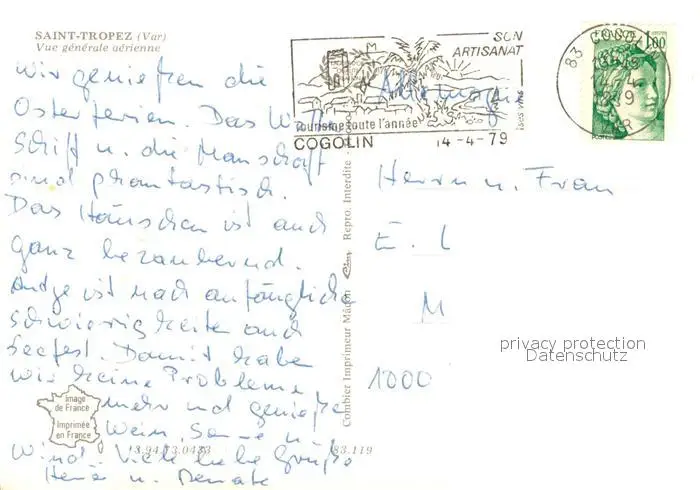 SAINT-TROPEZ (Var)
Vue générale aérienne
Wir genießen die
Osterferien. Das
Schiff u. die Manschaft
sind phantastisch.
Das Häuschen ist auch
ganz bezaubernd.
ist nach anfänglichen
schwierigkeiten auch
seefest. Damit habe
wir keine Probleme
mehr und genieße
Wein, Sonne u
Wind. Viele liebe Grüße
u. Renate
Image
de France
Imprimée
en France
83.119
Combier Imprimeur Mâcon Cim Repro. Interdite
SON
ARTISANAT
tourisme toute l'année
COGOLIN 14-4-79
83 COGOLIN
VAR
1,00
Allemagne
Herrn u. Frau
E. L
M
1000
privacy protection
Datenschutz